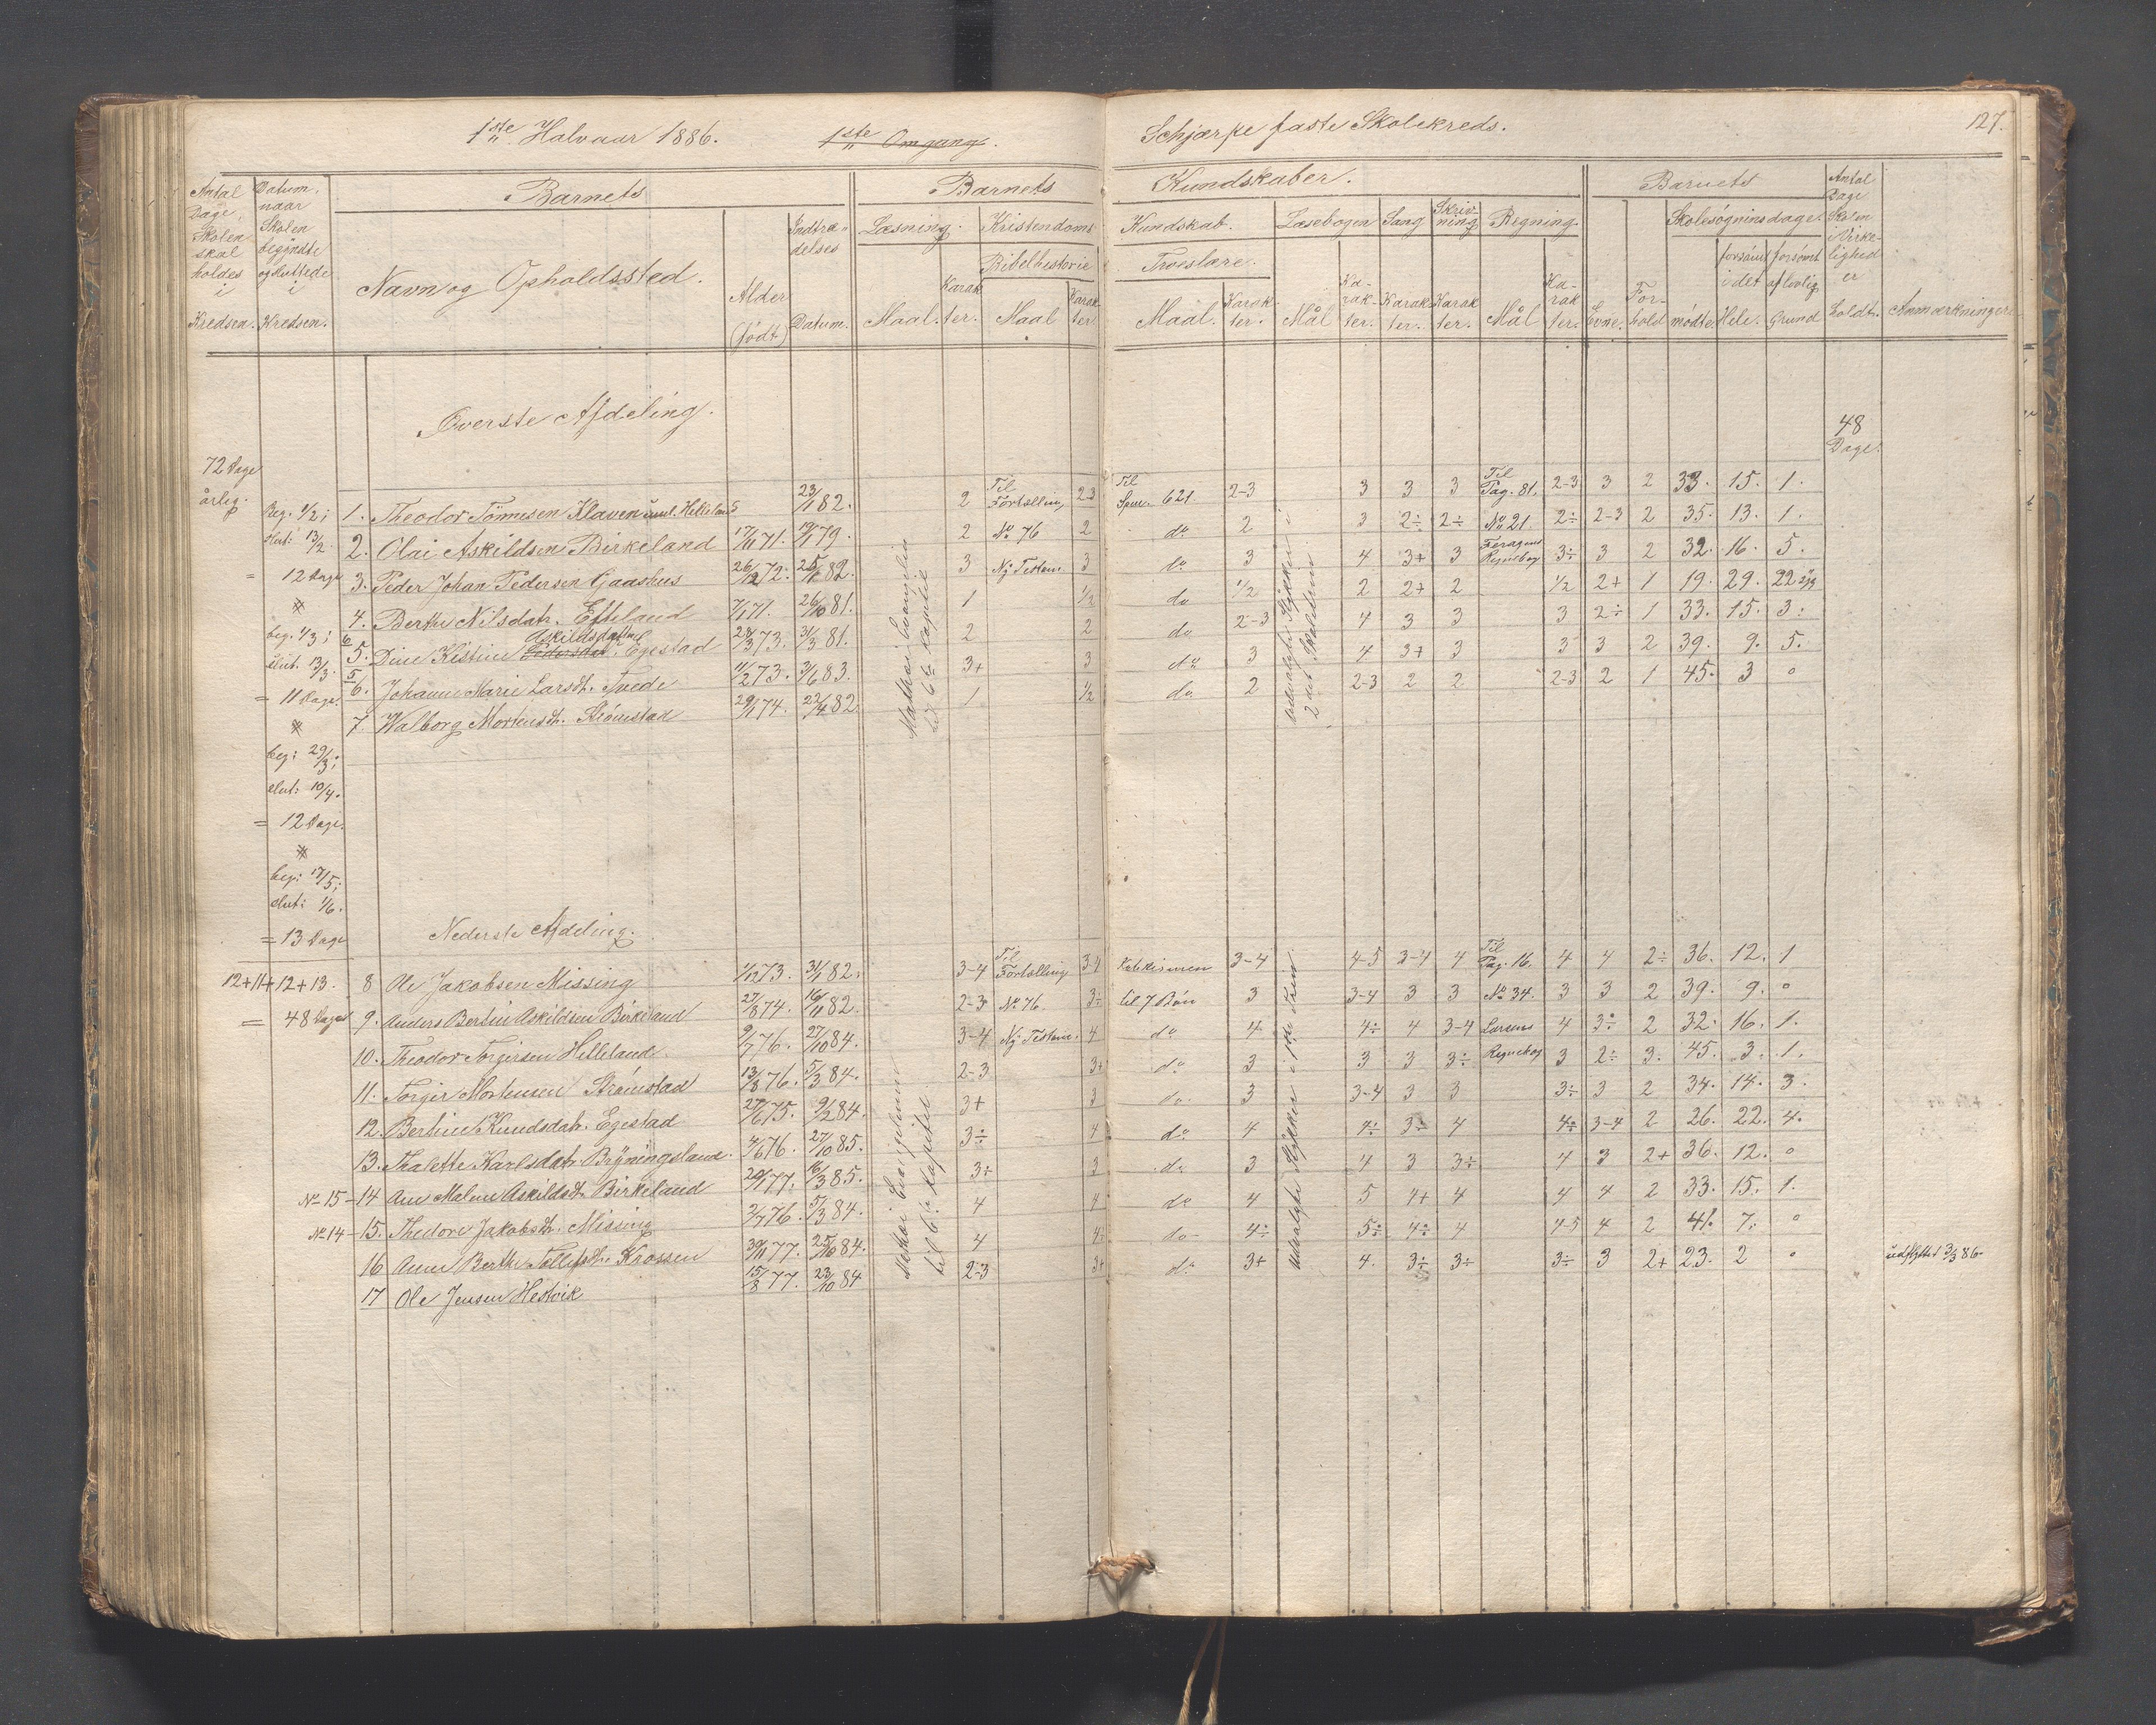 1ste Halvaar 1886. 1ste Omgang. Schjærpe faste Skolekreds. 127.
Antal Dage, Skolen skal holdes i Kredsen.
Datum, naar Skolen begyndte og sluttede i Kredsen.
Barnets
Navn og Opholdssted. Alder (født) Indtrædelses Datum.
Barnets Kundskaber.
Læsning. Kristendoms Kundskab. Læsebogen Sang Skrivning Regning.
Bibelhistorie Troeslære.
Maal. Karakter. Maal Karakter Maal. Karakter. Mål Karakter. Karakter. Karakter. Mål Karakter.
Barnets
Evne. Forhold Skolesøgningsdage. mødte forsømt i det Hele. forsømt af lovlig Grund
Antal Dage Skolen i Virkelighed er holdt. Anmærkninger
Øverste Afdeling.
48 Dage.
72 Dage årleg.
Beg. 1/2; slut: 13/2 = 12 Dage
beg. 1/3; slut. 13/3. = 11 Dage.
beg: 29/3; slut: 10/4. = 12 Dage.
beg: 17/5; slut: 1/6. = 13 Dage
12+11+12+13. = 48 Dage
Mathæi Evangelium til 6te Kapitel
udvalgte Stykker i 2det Skoletrin
1. Theodor Tönnesen Klaven Helleland 23/1 82. 2 Til Fortælling 2-3 Til Spm. 621 2-3 3 3 3 Til Pag. 81. 2-3 3 2 33. 15. 1.
2. Olai Askildsen Birkeland 17/11 71. 19/1 79. 2 No 76 2 do 2 3 2÷ 2÷ No 21. 2÷ 2-3 2 35. 13. 1.
3. Peder Johan Pedersen Gaashus 26/12 72. 25/1 82. 3 Ny Testam. 3 do 3 4 3+ 3 Regnebog 3÷ 3 2 32. 16. 5.
4. Berthe Nilsdatr. Efteland 7/1 71. 26/10 81. 1 1/2 do 1/2 2 2+ 2 1/2 2+ 1 19. 29. 22 syg
6 5. Dine Kistine Askildsdatter Pedersdat. Egestad 28/3 73. 31/3 81. 2 2 do 2-3 4 3 3 3 2÷ 1 33. 15. 3.
5 6. Johanne Marie Larsdt. Tvede 11/2 73. 3/6 83. 3+ 3 do 3 4 3+ 3 3 3 2 39. 9. 5.
7. Walborg Mortensdt. Strömstak 29/1 74. 22/4 82. 1 1/2 do. 2 2-3 2 2 2-3 2 1 45. 3 0
Nederste Afdeling.
Mathæi Evangelium til 6te Kapitel
udvalgte Stykker i 1ste Trin
8 Ole Jakobsen Missing 1/12 73. 31/1 82. 3-4 Til Fortælling 3-4 Katekismen 3-4 4-5 3-4 4 Til Pag. 16. 4 4 2÷ 36. 12. 1
9. Anders Bertin Askildsen Birkeland 27/8 74. 16/11 82. 2-3 No 76. 3÷ til 7 Bön 3 3-4 3 3 No 34. 3 3 2 39. 9. 0
10. Theodor Torgersen Helleland. 9/7 76. 27/10 84. 3-4 Ny Testam. 4 do 4 4÷ 4 3-4 Larsens 4 3÷ 2 32. 16. 1.
11. Torger Mortensen Strömstad 13/8 76. 5/3 84. 2-3 3+ do 3 3 3 3÷ Regnebog 3 2÷ 3. 45. 3. 1.
12. Bertine Knudsdatr. Egestad 27/6 75. 9/2 84. 3+ 3 do 3 3-4 3 3 3÷ 3 2 34. 14. 3.
13. Thalette Karlsdatr. Bryningsland 4/6 76. 27/10 85. 3÷ 4 do 4 4÷ 3÷ 4 4÷ 3-4 2 26. 22. 4.
No 15 - 14 Ane Malene Askildsdt. Birkeland 20/1 77. 16/3 85. 3÷ 3 do 3 4 3 3÷ 4 3 2+ 36. 12. 0
No 14 - 15. Thedore Jakobsdt. Missing 2/7 76. 5/3 84. 4 4 do 4 5 4+ 4 4 4 2 33. 15. 1.
16 Anne Berthe Tollefsdt. Krossen 30/11 77. 25/10 84. 4 4÷ do 4÷ 5÷ 4÷ 4 4-5 4 2 41. 7. 0
17 Ole Jensen Hestvik 15/8 77. 23/10 84 2-3 3+ do 3+ 4. 3÷ 3÷ 3÷ 3 2+ 23. 2 0 udflyttet 3/3 86.